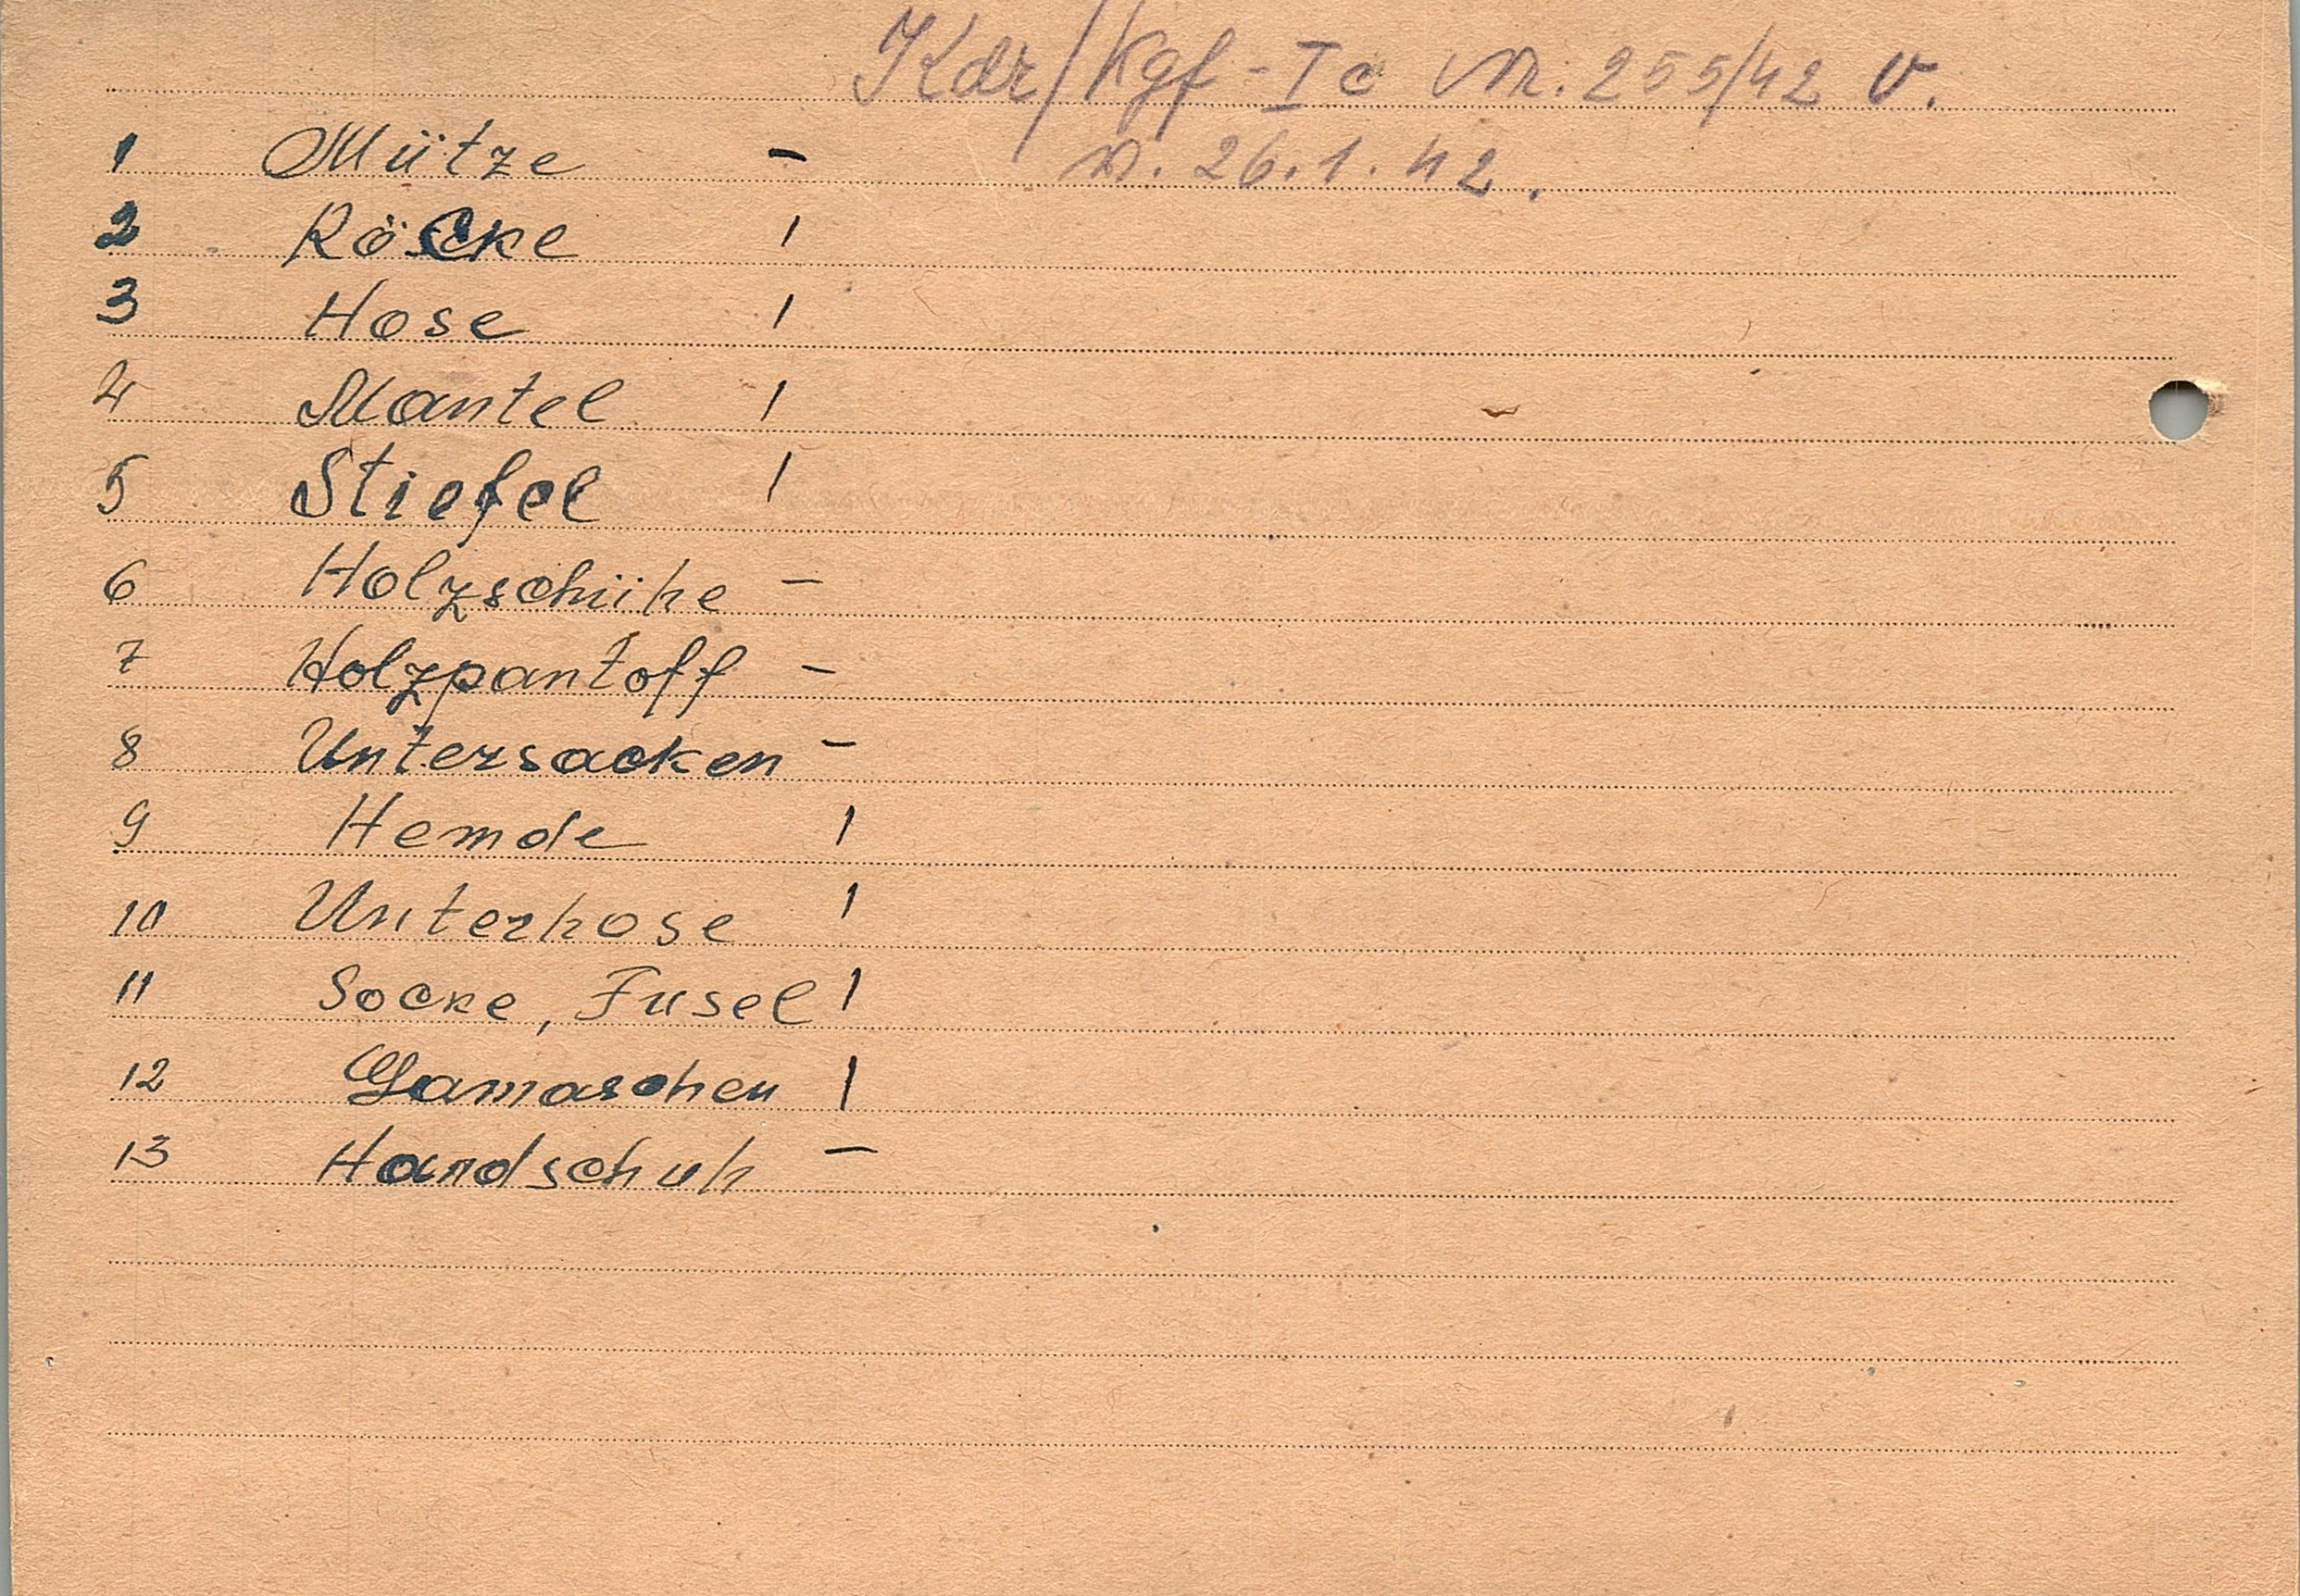 Kdr/Kgf-Ic Nr. 255/42 v.
v. 26.1.42.
1 Mütze –
2 Röcke 1
3 Hose 1
4 Mantel 1
5 Stiefel 1
6 Holzschühe –
7 Holzpantoff –
8 Untersacken –
9 Hemde 1
10 Unterhose 1
11 Socke, Fusel 1
12 Gamaschen 1
13 Handschuh –